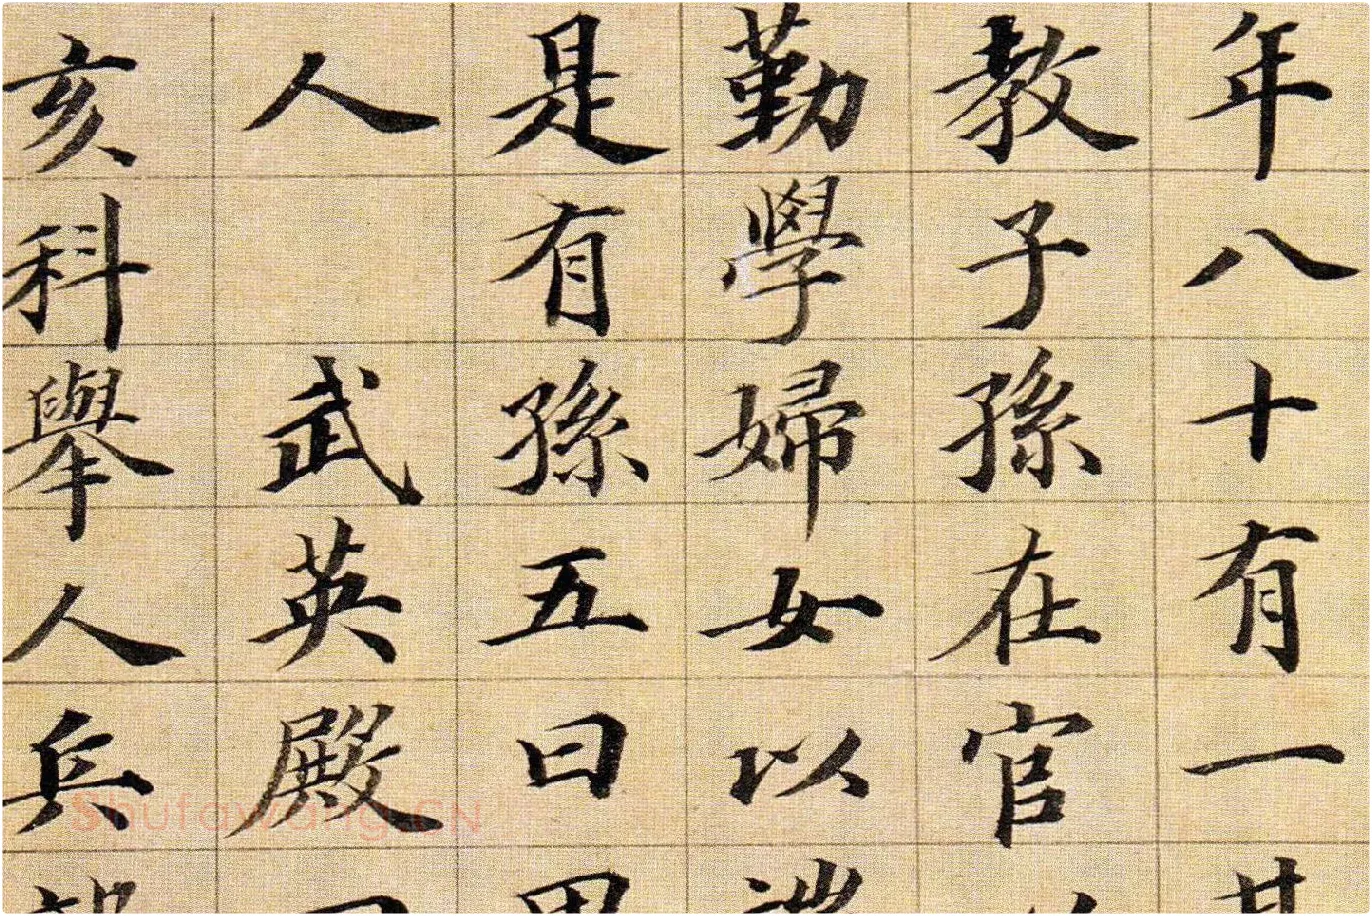 年八十有一
教子孫在官
勤學婦女以
是有孫五曰
人 武英殿
亥科舉人兵
Shufawang.CN